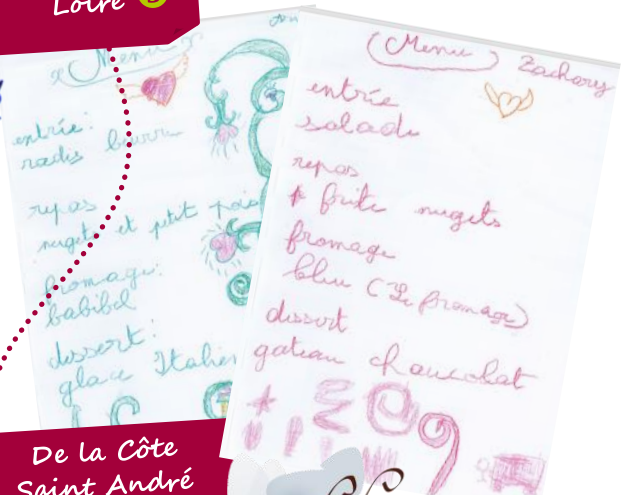 Loire
Menu
entrée:
radis beurre
repas
nugets et petit pois
fromage:
babibel
dessert:
glace Italien
(Menu) Zachary
entrée
salade
repas
frite nugets
fromage
bleu (Le fromage)
dessert
gateau chaucolat
De la Côte
Saint André